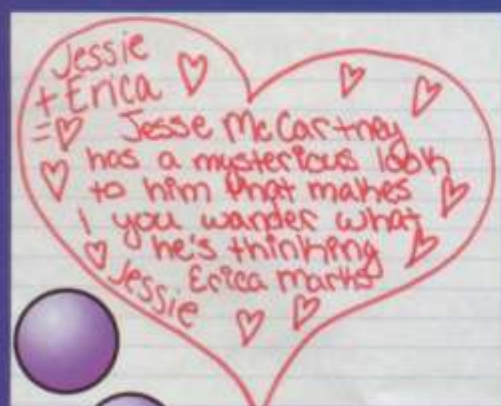 Jessie
+ Erica
=
Jesse McCartney
has a mysterious look
to him that makes
you wander what
he's thinking
Erica Marks
Jessie